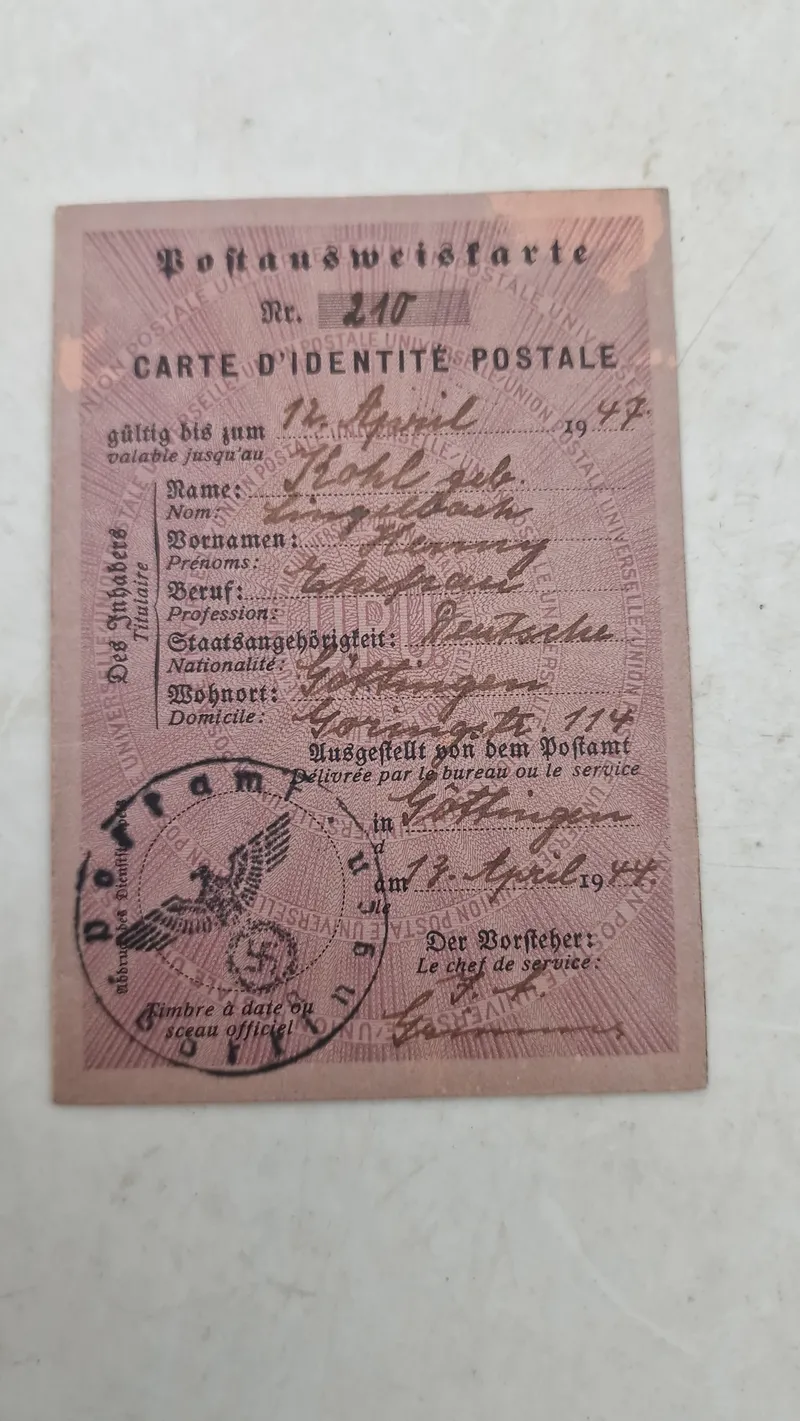 Postausweiskarte
Nr. 210
CARTE D'IDENTITÉ POSTALE
gültig bis zum 12. April 1947.
valable jusqu'au
Des Inhabers
Titulaire
Name: Kohl geb.
Nom: Lingelbach
Vornamen: Henny
Prénoms:
Beruf: Ehefrau
Profession:
Staatsangehörigkeit: Deutsche
Nationalité:
Wohnort: Göttingen
Domicile: Goringstr. 114
Ausgestellt von dem Postamt
Délivrée par le bureau ou le service
in Göttingen
am 13. April 1944.
Der Vorsteher:
Le chef de service:
Timbre à date ou
sceau officiel
Postamt
UNION POSTALE UNIVERSELLE